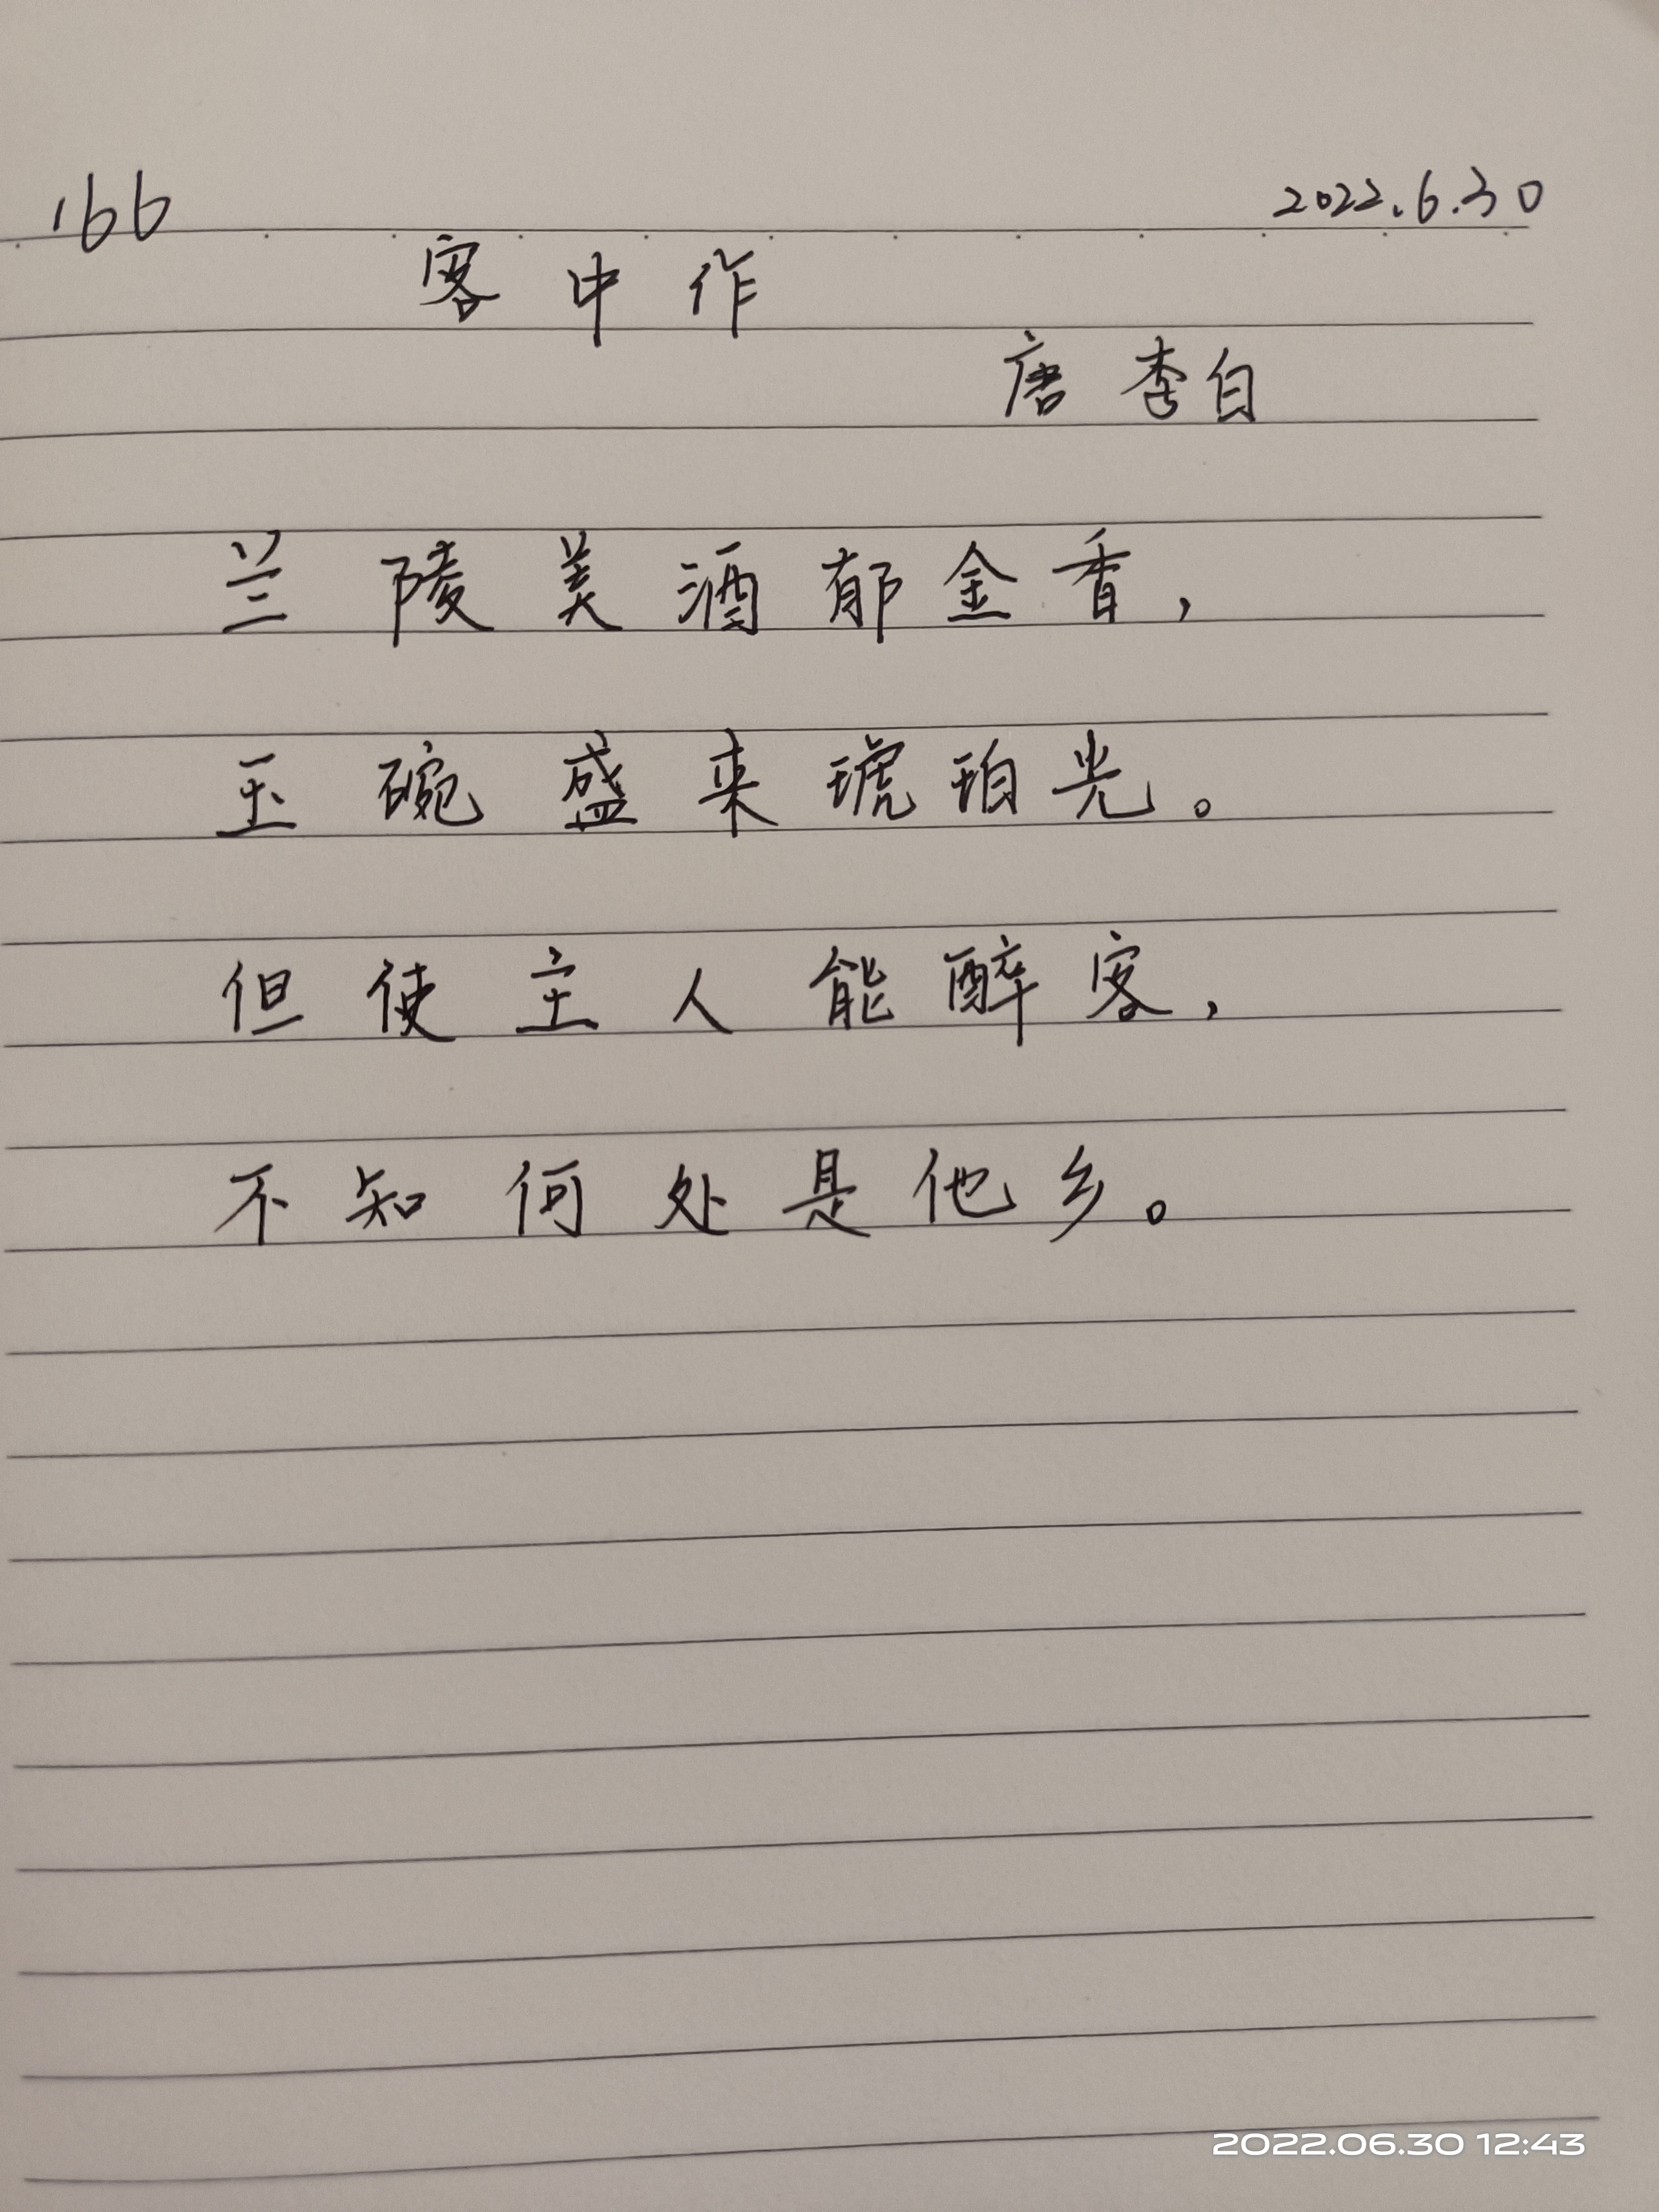 166 2022.6.30
客中作
唐 李白
兰陵美酒郁金香,
玉碗盛来琥珀光。
但使主人能醉客,
不知何处是他乡。
2022.06.30 12:43